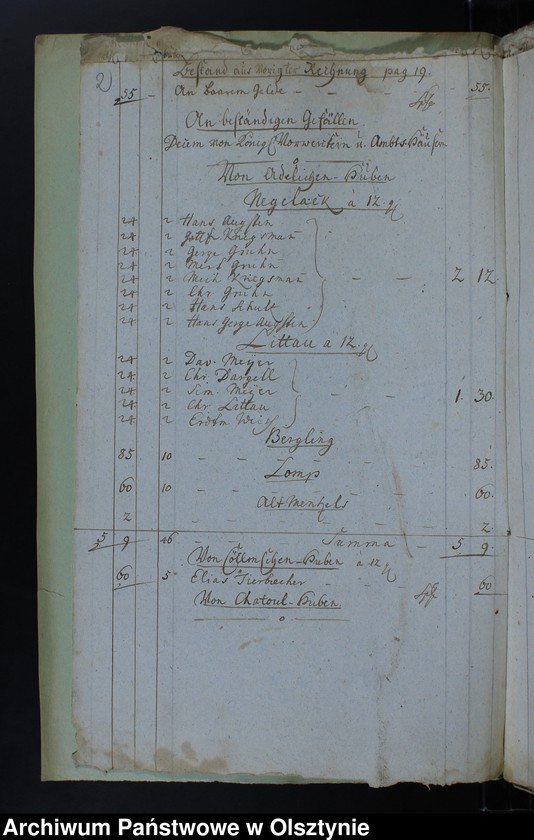 2)
Bestand aus voriger Rechnung pag 19.
55 An baarem Gelde - - - - 55.
An beständigen Gefällen
Decem von Königl. Vorwerckern u. Ambts Häusern
Von Adelichen Huben
Negelack a 12 g
24 2 Hans Augsten
24 2 Gottfr. Kriegsman
24 2 Gerge Gruhn
24 2 Mert Gruhn
24 2 Mich Kriegsman - - 2 12
24 2 Chr Gruhn
24 2 Hans Schultz
24 2 Hans Gerge Augsten
Littau a 12.
24 2 Dav. Meyer
24 2 Chr Dargell
24 2 Sim. Meyer - - - 1. 30.
24 2 Chr Littau
24 2 Erdtm Weiß
Bergling
85 10 - - - - - 85.
Lomp
60 10 - - - - - 60.
Alt Mentzels
2 - - - - - 2.
5 9 46 - - - Summa - 5 9.
Von Cöllmschen Huben a 12
60 5 Elias Tierbächer - - - 60
Von Chatoul-Huben